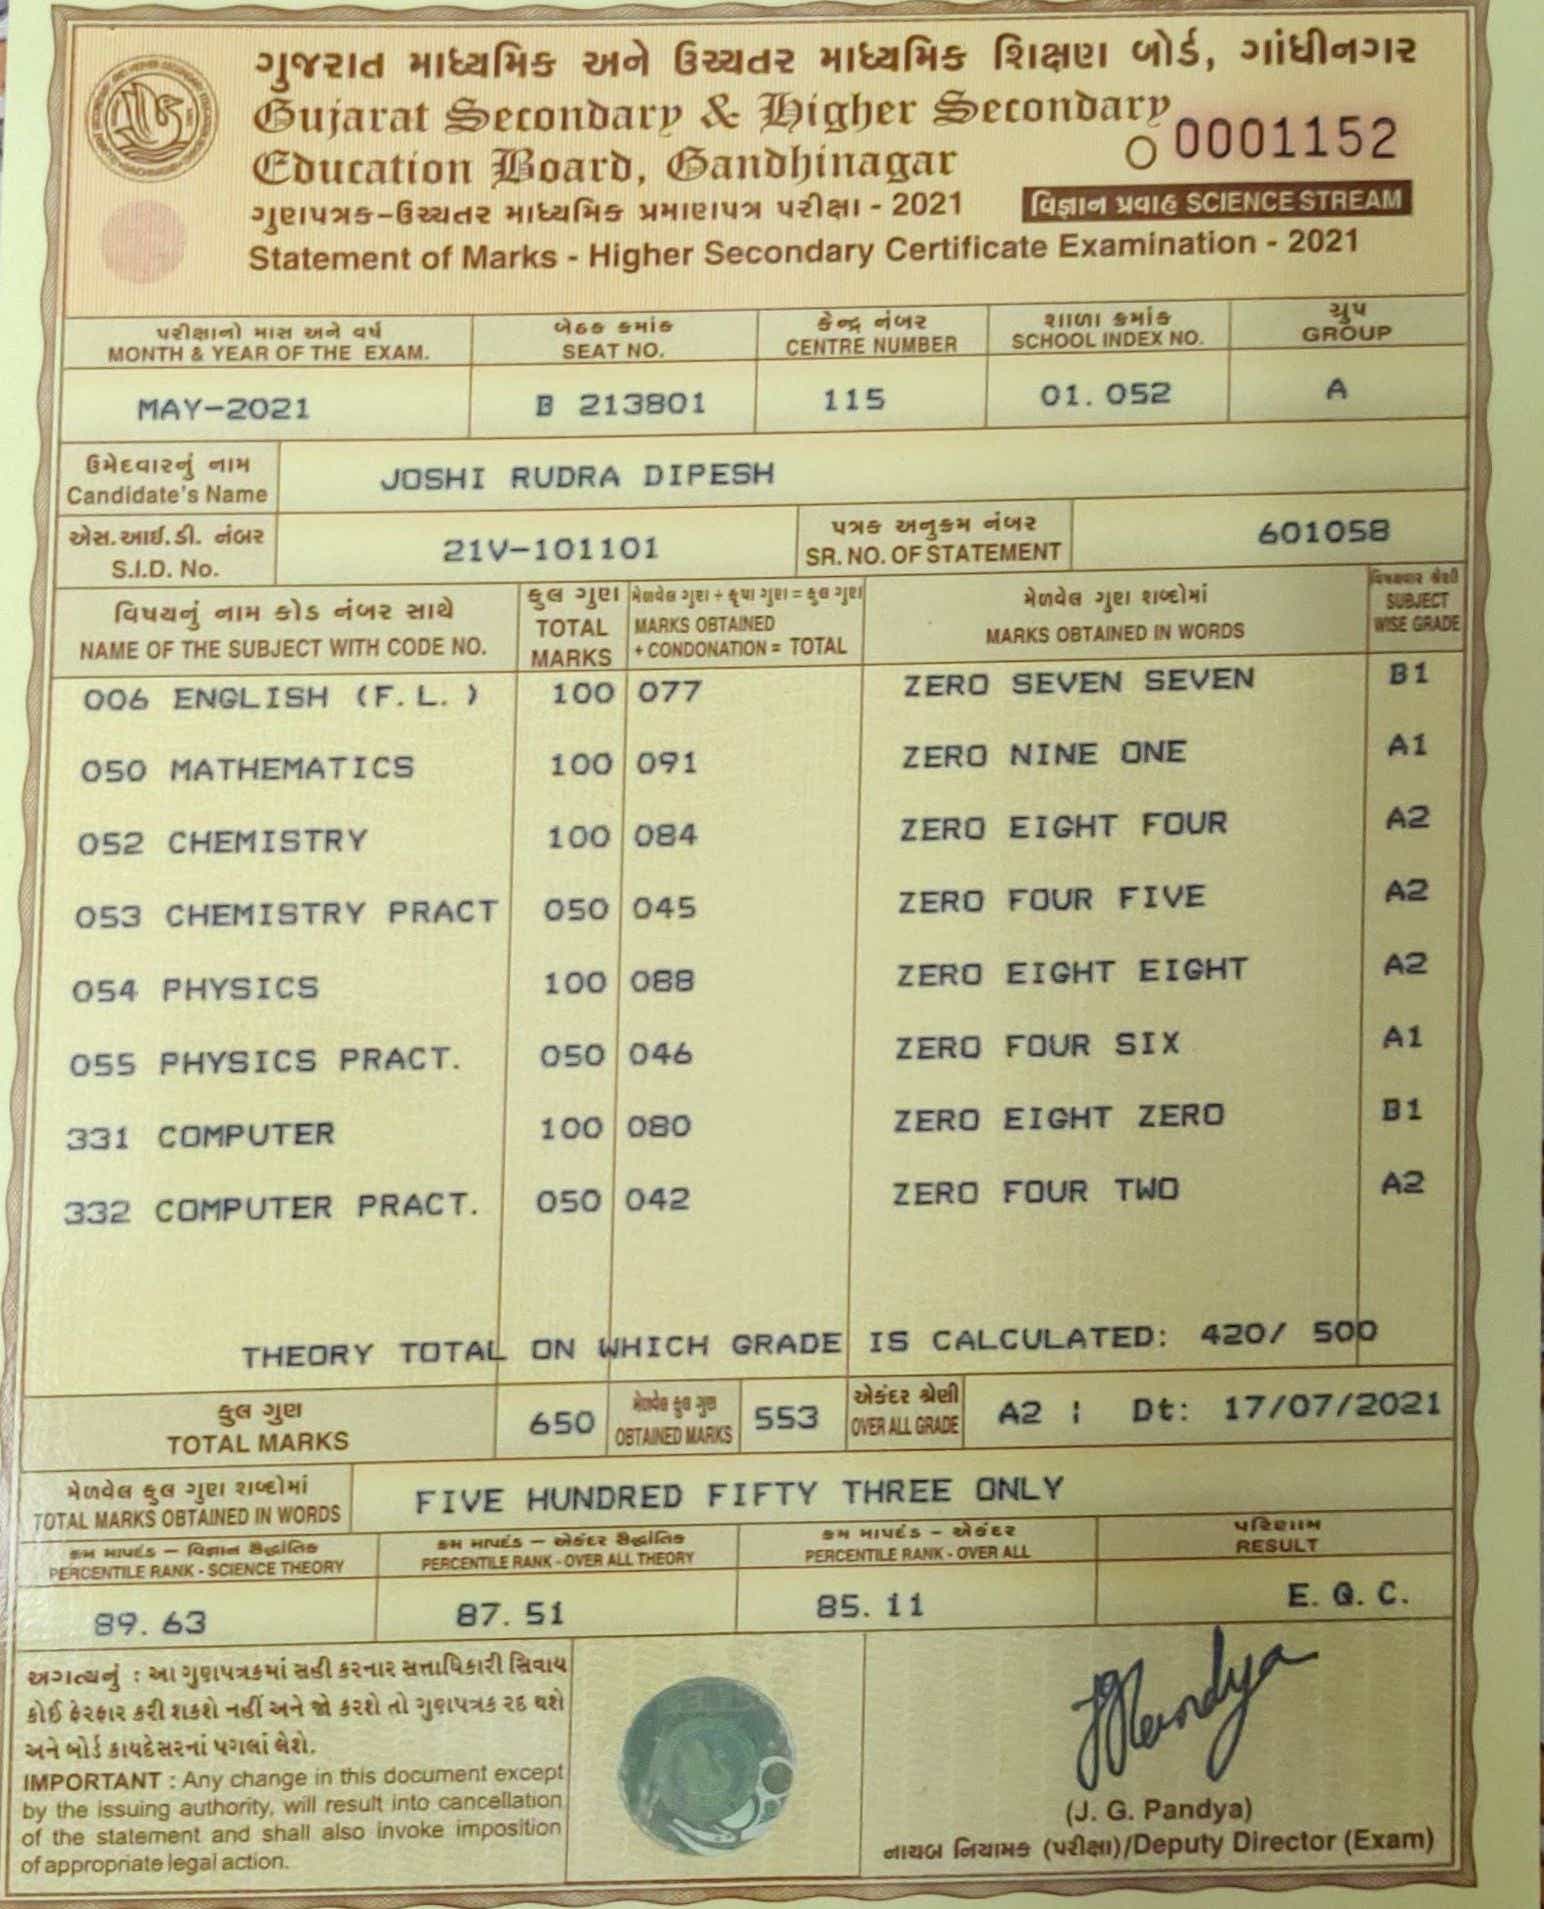 ગુજરાત માધ્યમિક અને ઉચ્ચતર માધ્યમિક શિક્ષણ બોર્ડ, ગાંધીનગર
Gujarat Secondary & Higher Secondary
Education Board, Gandhinagar
O 0001152
ગુણપત્રક-ઉચ્ચતર માધ્યમિક પ્રમાણપત્ર પરીક્ષા - 2021
વિજ્ઞાન પ્રવાહ SCIENCE STREAM
Statement of Marks - Higher Secondary Certificate Examination - 2021
પરીક્ષાનો માસ અને વર્ષ બેઠક ક્રમાંક કેન્દ્ર નંબર શાળા ક્રમાંક ગ્રુપ
MONTH & YEAR OF THE EXAM. SEAT NO. CENTRE NUMBER SCHOOL INDEX NO. GROUP
MAY-2021 B 213801 115 01.052 A
ઉમેદવારનું નામ
Candidate's Name JOSHI RUDRA DIPESH
એસ.આઈ.ડી. નંબર પત્રક અનુક્રમ નંબર
S.I.D. No. 21V-101101 SR. NO. OF STATEMENT 601058
વિષયનું નામ કોડ નંબર સાથે કુલ ગુણ મેળવેલ ગુણ + કૃપા ગુણ = કુલ ગુણ મેળવેલ ગુણ શબ્દોમાં વિષયવાર શ્રેણી
NAME OF THE SUBJECT WITH CODE NO. TOTAL MARKS MARKS OBTAINED + CONDONATION = TOTAL MARKS OBTAINED IN WORDS SUBJECT WISE GRADE
006 ENGLISH (F.L.) 100 077 ZERO SEVEN SEVEN B1
050 MATHEMATICS 100 091 ZERO NINE ONE A1
052 CHEMISTRY 100 084 ZERO EIGHT FOUR A2
053 CHEMISTRY PRACT 050 045 ZERO FOUR FIVE A2
054 PHYSICS 100 088 ZERO EIGHT EIGHT A2
055 PHYSICS PRACT. 050 046 ZERO FOUR SIX A1
331 COMPUTER 100 080 ZERO EIGHT ZERO B1
332 COMPUTER PRACT. 050 042 ZERO FOUR TWO A2
THEORY TOTAL ON WHICH GRADE IS CALCULATED: 420/ 500
કુલ ગુણ મેળવેલ કુલ ગુણ એકંદર શ્રેણી
TOTAL MARKS 650 OBTAINED MARKS 553 OVER ALL GRADE A2 | Dt: 17/07/2021
મેળવેલ કુલ ગુણ શબ્દોમાં
TOTAL MARKS OBTAINED IN WORDS FIVE HUNDRED FIFTY THREE ONLY
ક્રમ માપદંડ – વિજ્ઞાન સૈદ્ધાંતિક ક્રમ માપદંડ – એકંદર સૈદ્ધાંતિક ક્રમ માપદંડ – એકંદર પરિણામ
PERCENTILE RANK - SCIENCE THEORY PERCENTILE RANK - OVER ALL THEORY PERCENTILE RANK - OVER ALL RESULT
89.63 87.51 85.11 E.Q.C.
અગત્યનું : આ ગુણપત્રકમાં સહી કરનાર સત્તાધિકારી સિવાય
કોઈ ફેરફાર કરી શકશે નહીં અને જો કરશે તો ગુણપત્રક રદ થશે
અને બોર્ડ કાયદેસરનાં પગલાં લેશે.
IMPORTANT : Any change in this document except
by the issuing authority, will result into cancellation
of the statement and shall also invoke imposition
of appropriate legal action.
JGPandya
(J. G. Pandya)
નાયબ નિયામક (પરીક્ષા)/Deputy Director (Exam)